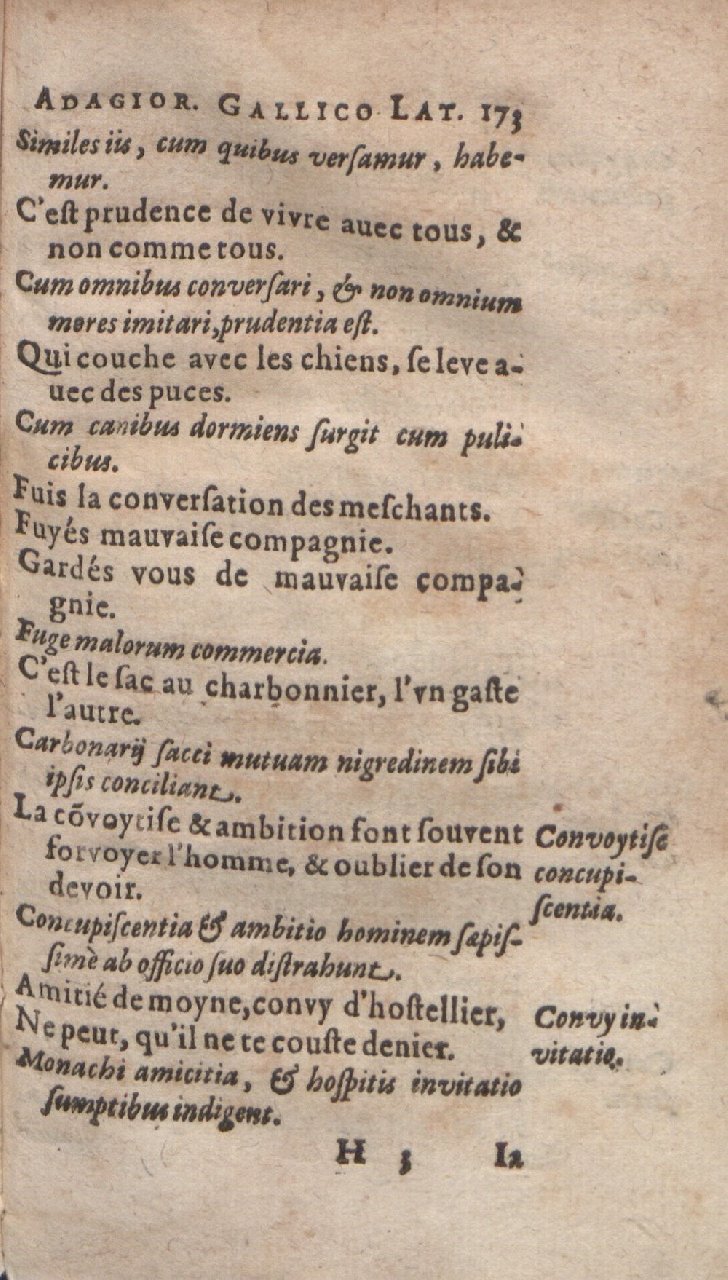 ADAGIOR. GALLICO LAT. 173
Similes iis, cum quibus verſamur, habe-
mur.
C'eſt prudence de vivre auec tous, &
non comme tous.
Cum omnibus converſari, & non omnium
mores imitari, prudentia eſt.
Qui couche avec les chiens, ſe leve a-
uec des puces.
Cum canibus dormiens ſurgit cum puli-
cibus.
Fuis la converſation des meſchants.
Fuyés mauvaiſe compagnie.
Gardés vous de mauvaiſe compa-
gnie.
Fuge malorum commercia.
C'eſt le ſac au charbonnier, l'vn gaſte
l'autre.
Carbonarij ſacci mutuam nigredinem ſibi
ipſis conciliant.
La cõvoytiſe & ambition font ſouvent
forvoyer l'homme, & oublier de ſon
devoir.
Convoytiſe
concupi-
ſcentia.
Concupiſcentia & ambitio hominem ſæpiſ-
ſimè ab officio ſuo diſtrahunt.
Amitié de moyne, convy d'hoſtellier,
Ne peut, qu'il ne te couſte denier.
Convy in-
vitatio.
Monachi amicitia, & hoſpitis invitatio
ſumptibus indigent.
H 3 La